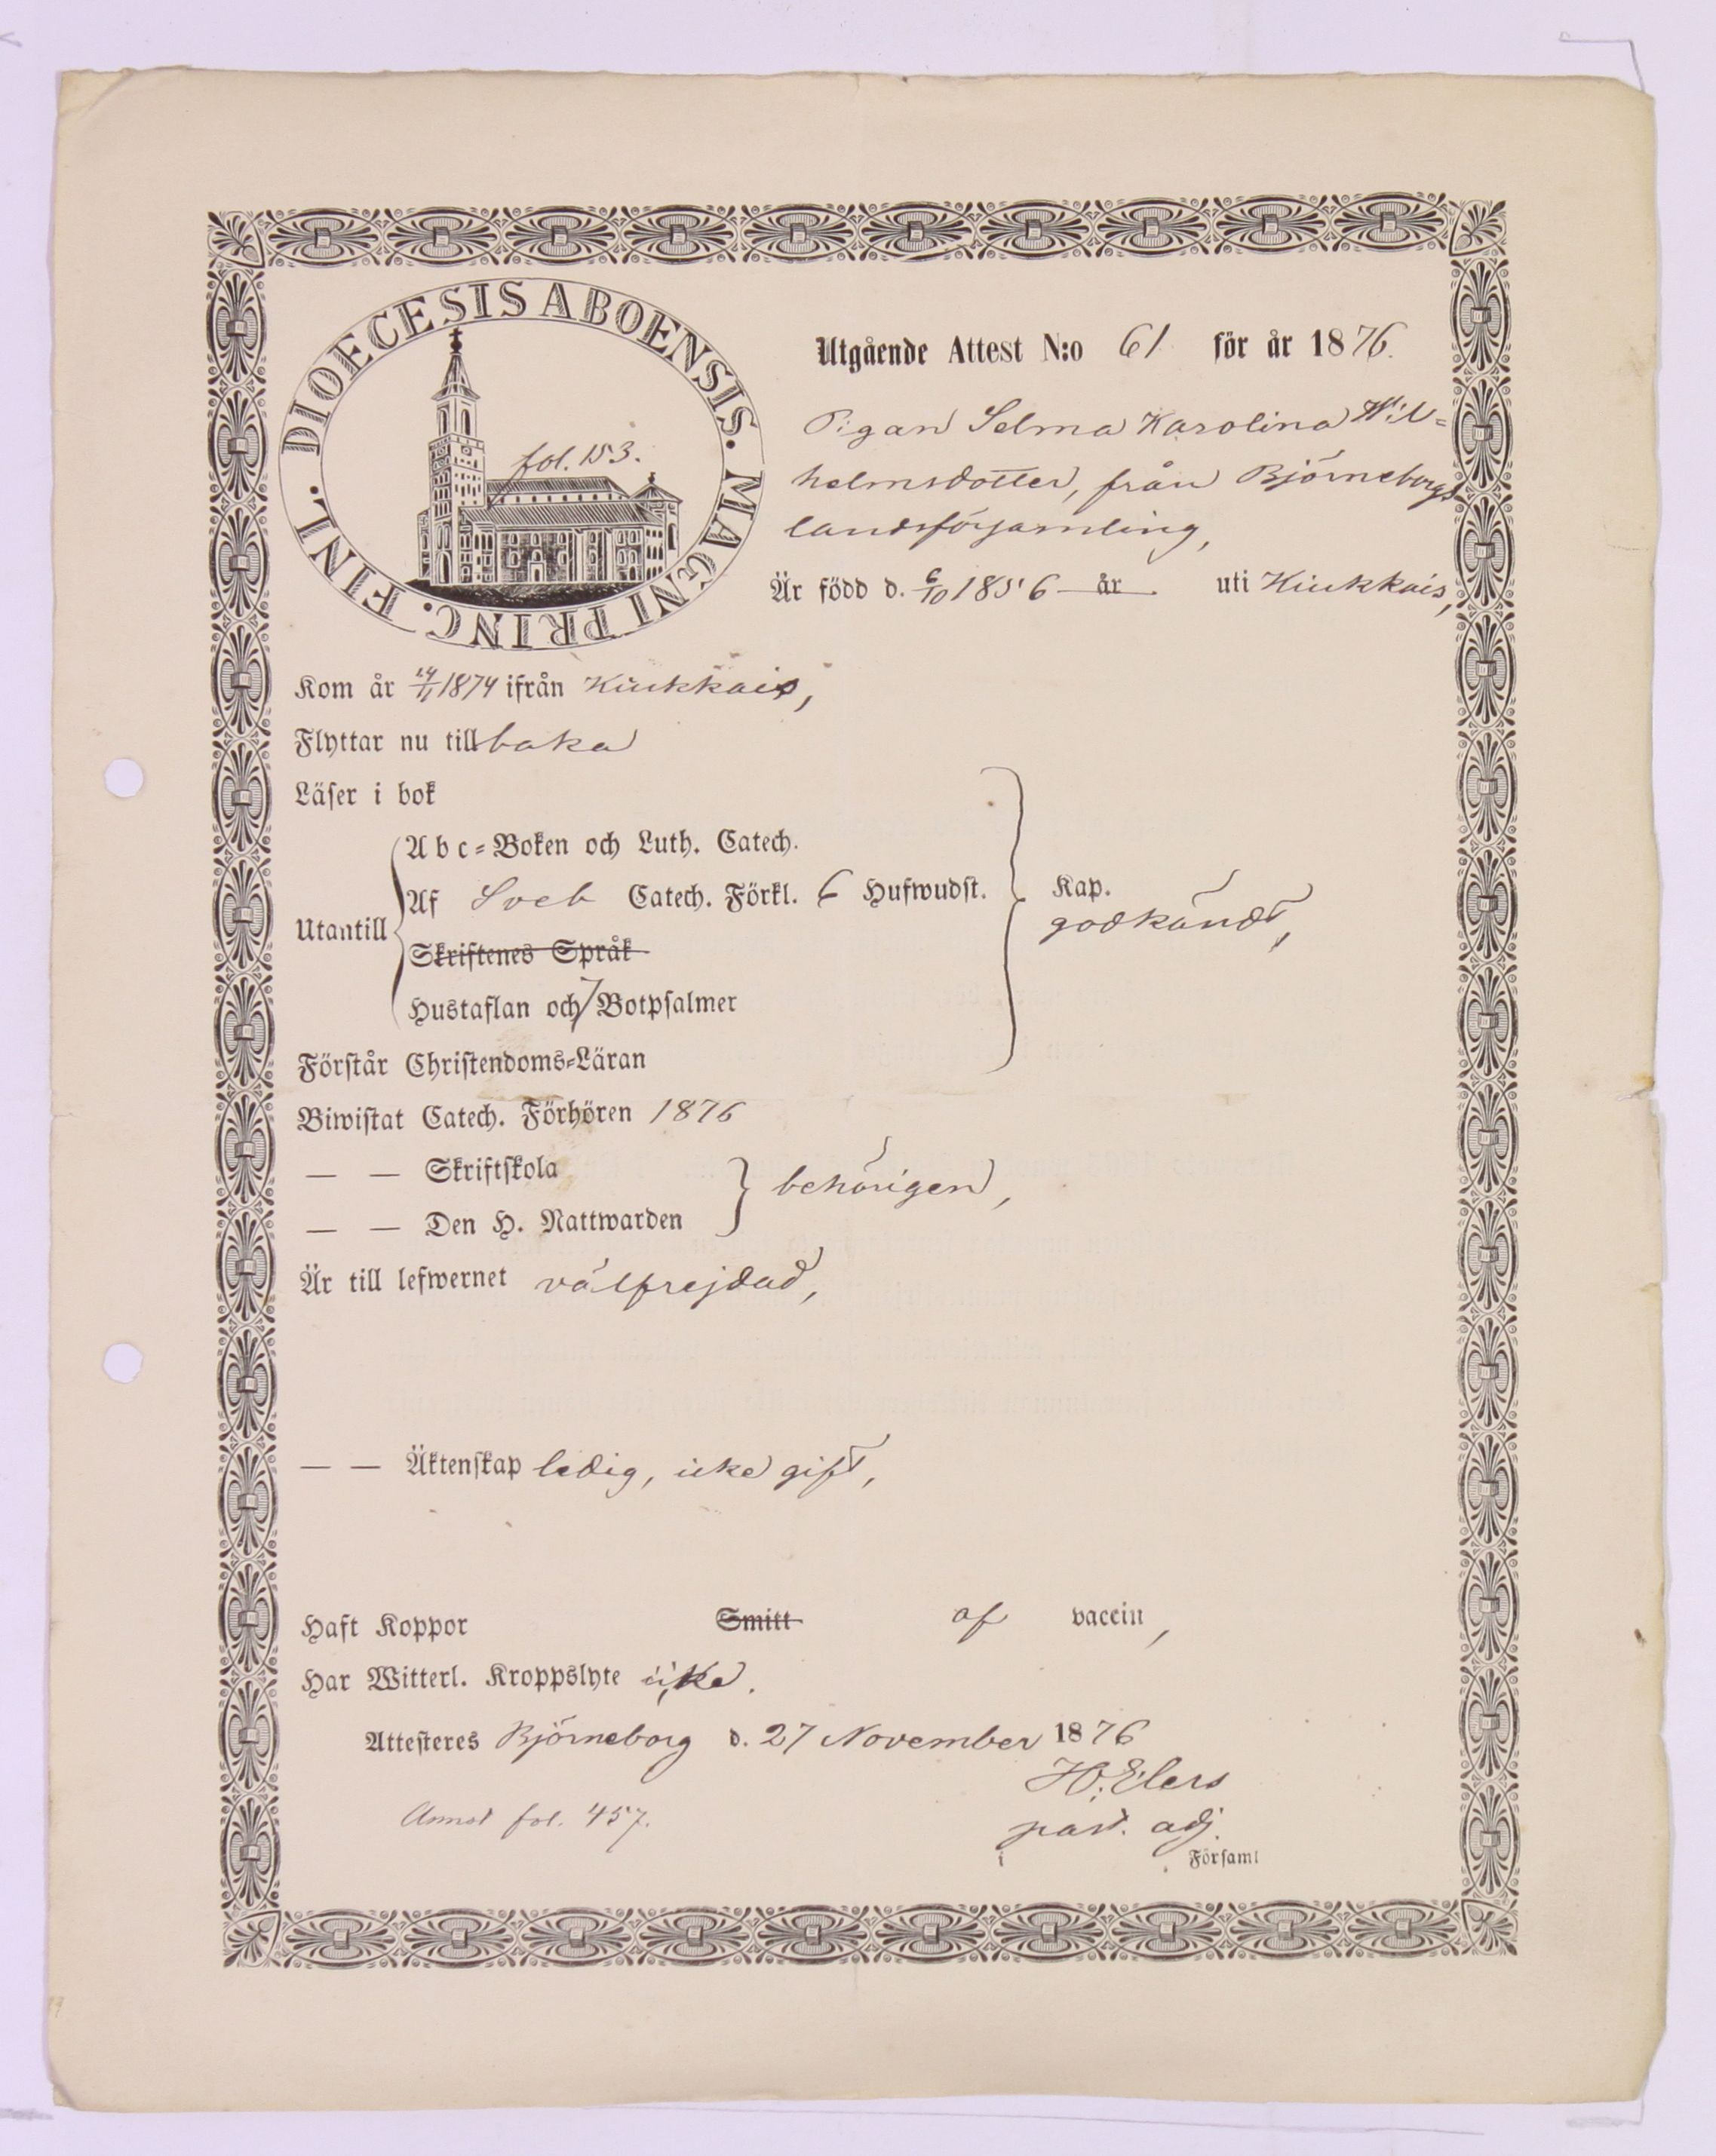 DIOECESIS ABOENSIS. MAGNI PRINC. FINL.
fol. 153.
Utgående Attest N:o 61 för år 1876.
Pigan Selma Karolina Wil-
helmsdotter, från Björneborgs
landsförsamling,
Är född d. 6/10 1856 år uti Kiukkais,
Kom år 24/11 1874 ifrån Kiukkais,
Flyttar nu tillbaka
Läser i bok
Abc-Boken och Luth. Catech.
Af Sveb Catech. Förkl. 6 Hufwudst.
Kap.
godkändt,
Utantill
Skriftenes Språk
Hustaflan och 7 Botpsalmer
Förstår Christendoms-Läran
Biwistat Catech. Förhören 1876
— — Skriftskola
behörigen,
— — Den H. Nattwarden
Är till lefwernet välfrejdad,
— — Äktenskap ledig, icke gift,
Haft Koppor Smitt af vaccin,
Har Witterl. Kroppslyte icke.
Attesteres Björneborg d. 27 November 1876
H. Elers
Annot fol. 457.
past. adj.
i Församl